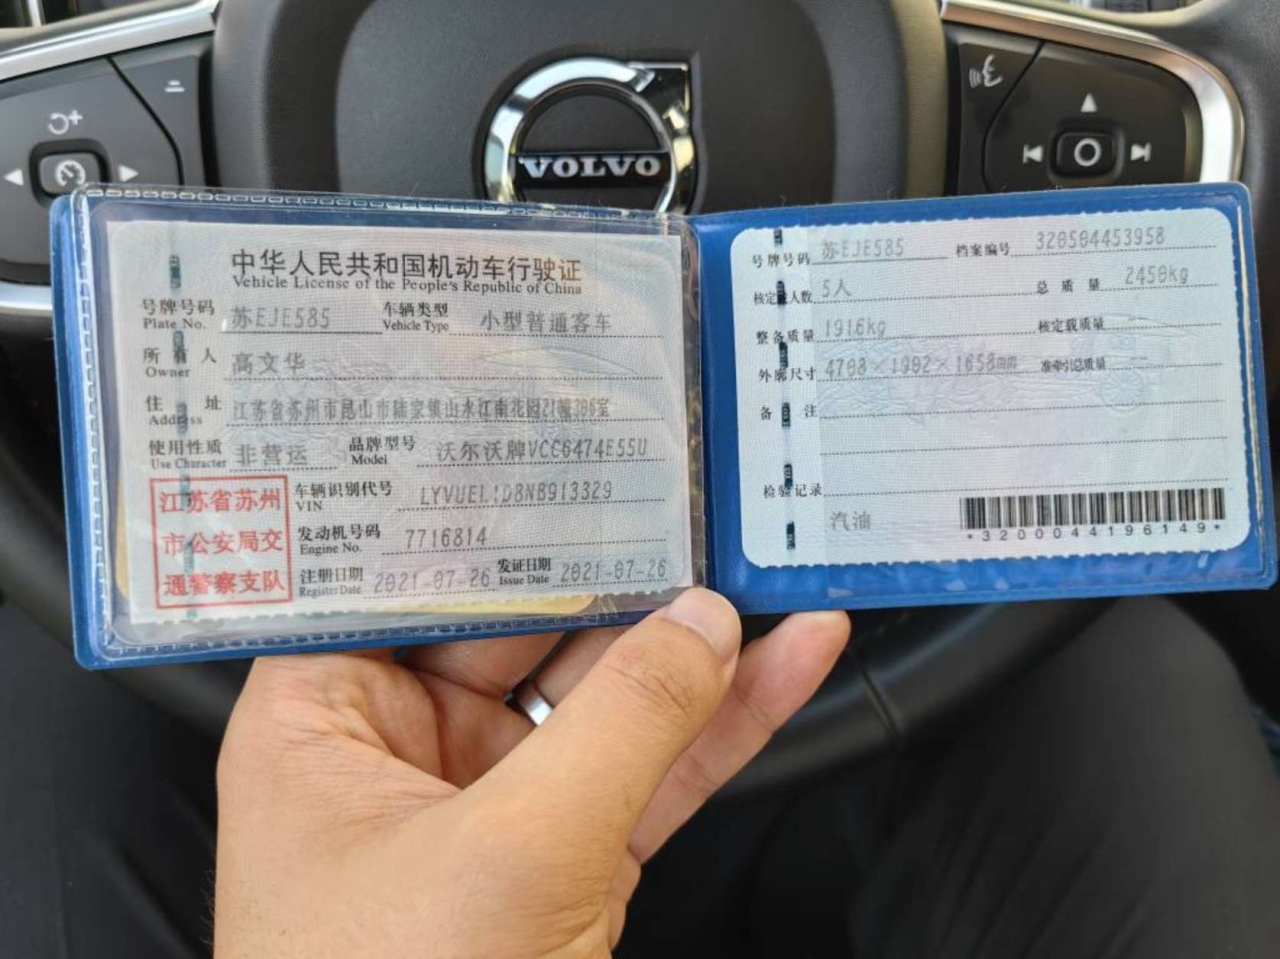 VOLVO
中华人民共和国机动车行驶证
Vehicle License of the People's Republic of China
号牌号码 苏EJE585 车辆类型 小型普通客车
Plate No. Vehicle Type
所有人 高文华
Owner
住址 江苏省苏州市昆山市陆家镇山水江南花园21幢306室
Address
使用性质 非营运 品牌型号 沃尔沃牌VCC6474E55U
Use Character Model
江苏省苏州
市公安局交
通警察支队
车辆识别代号
VIN
发动机号码 7716814
Engine No.
注册日期 2021-07-26 发证日期 2021-07-26
Register Date Issue Date
号牌号码 苏EJE585 档案编号 320504453958
核定载人数 5人 总质量 2450kg
整备质量 1916kg 核定载质量
外廓尺寸 4708×1902×1658mm 准牵引总质量
备注
检验记录
汽油
*3200044196149*